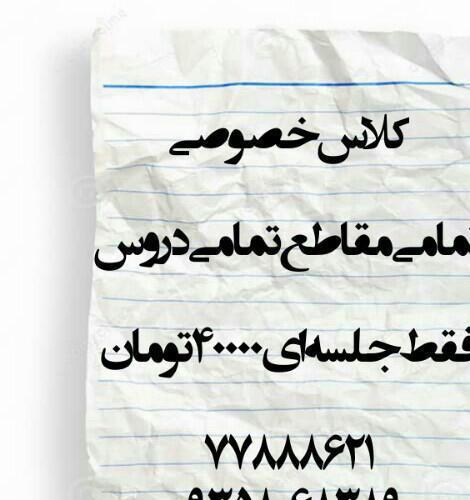 کلاس خصوصی
تمامی مقاطع تمامی دروس
فقط جلسه‌ای ۴۰۰۰۰ تومان
۷۷۸۸۸۶۲۱